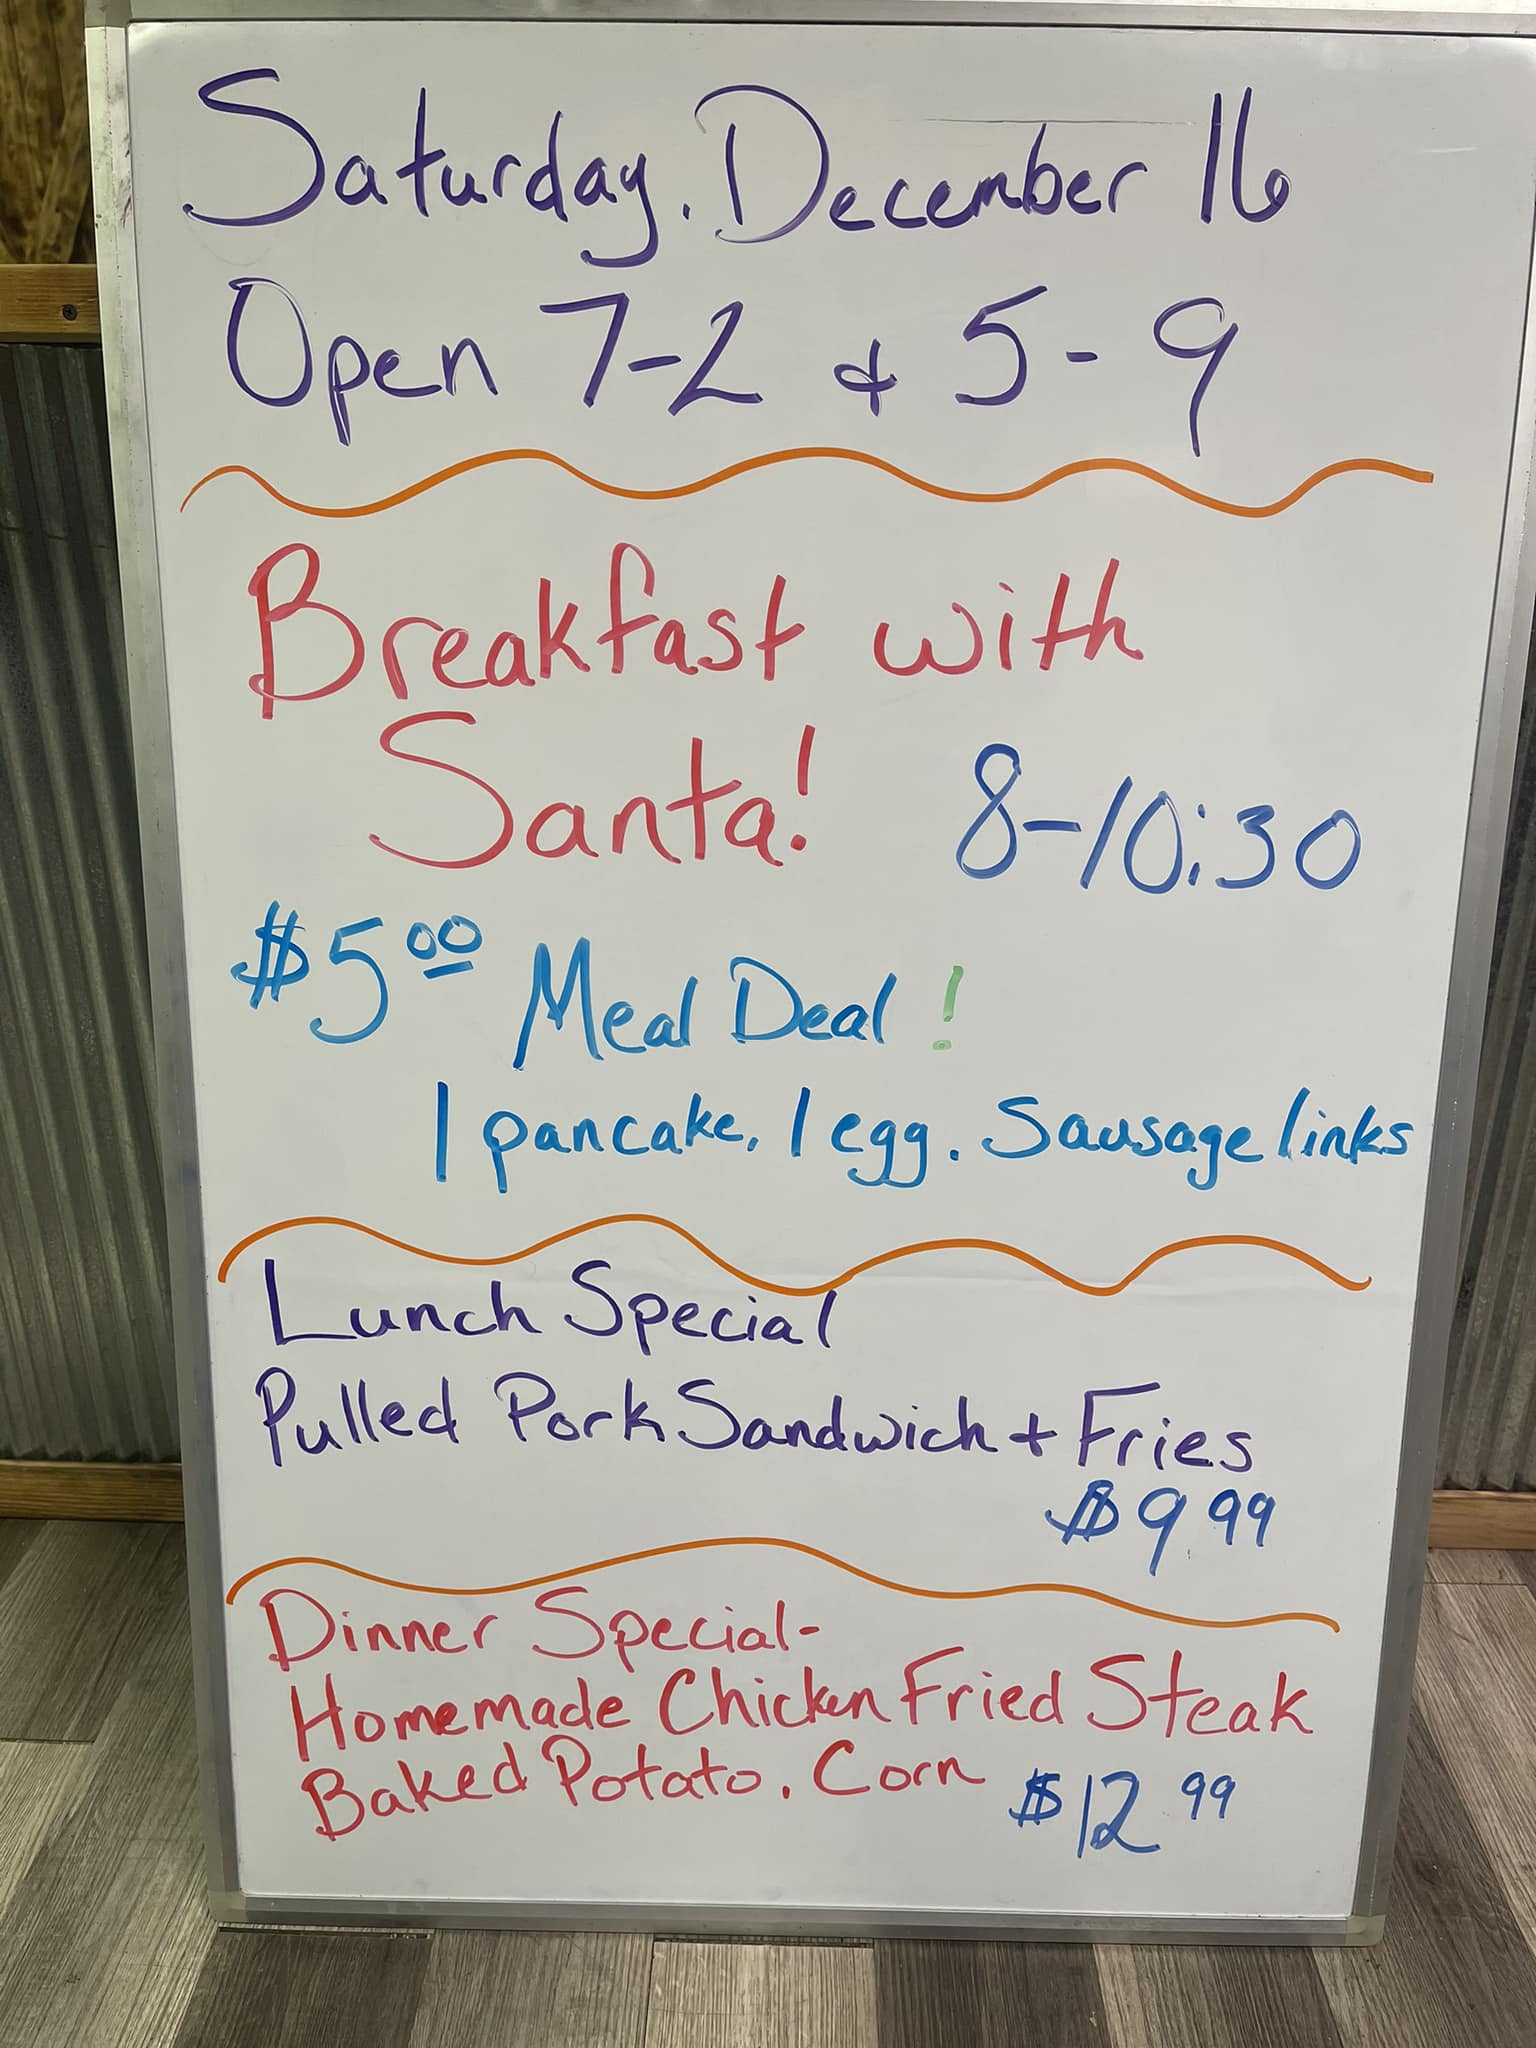 Saturday. December 16
Open 7-2 & 5-9
Breakfast with
Santa! 8-10:30
$5.00 Meal Deal!
1 pancake, 1 egg. Sausage links
Lunch Special
Pulled Pork Sandwich + Fries
$9.99
Dinner Special-
Homemade Chicken Fried Steak
Baked Potato. Corn $12 99